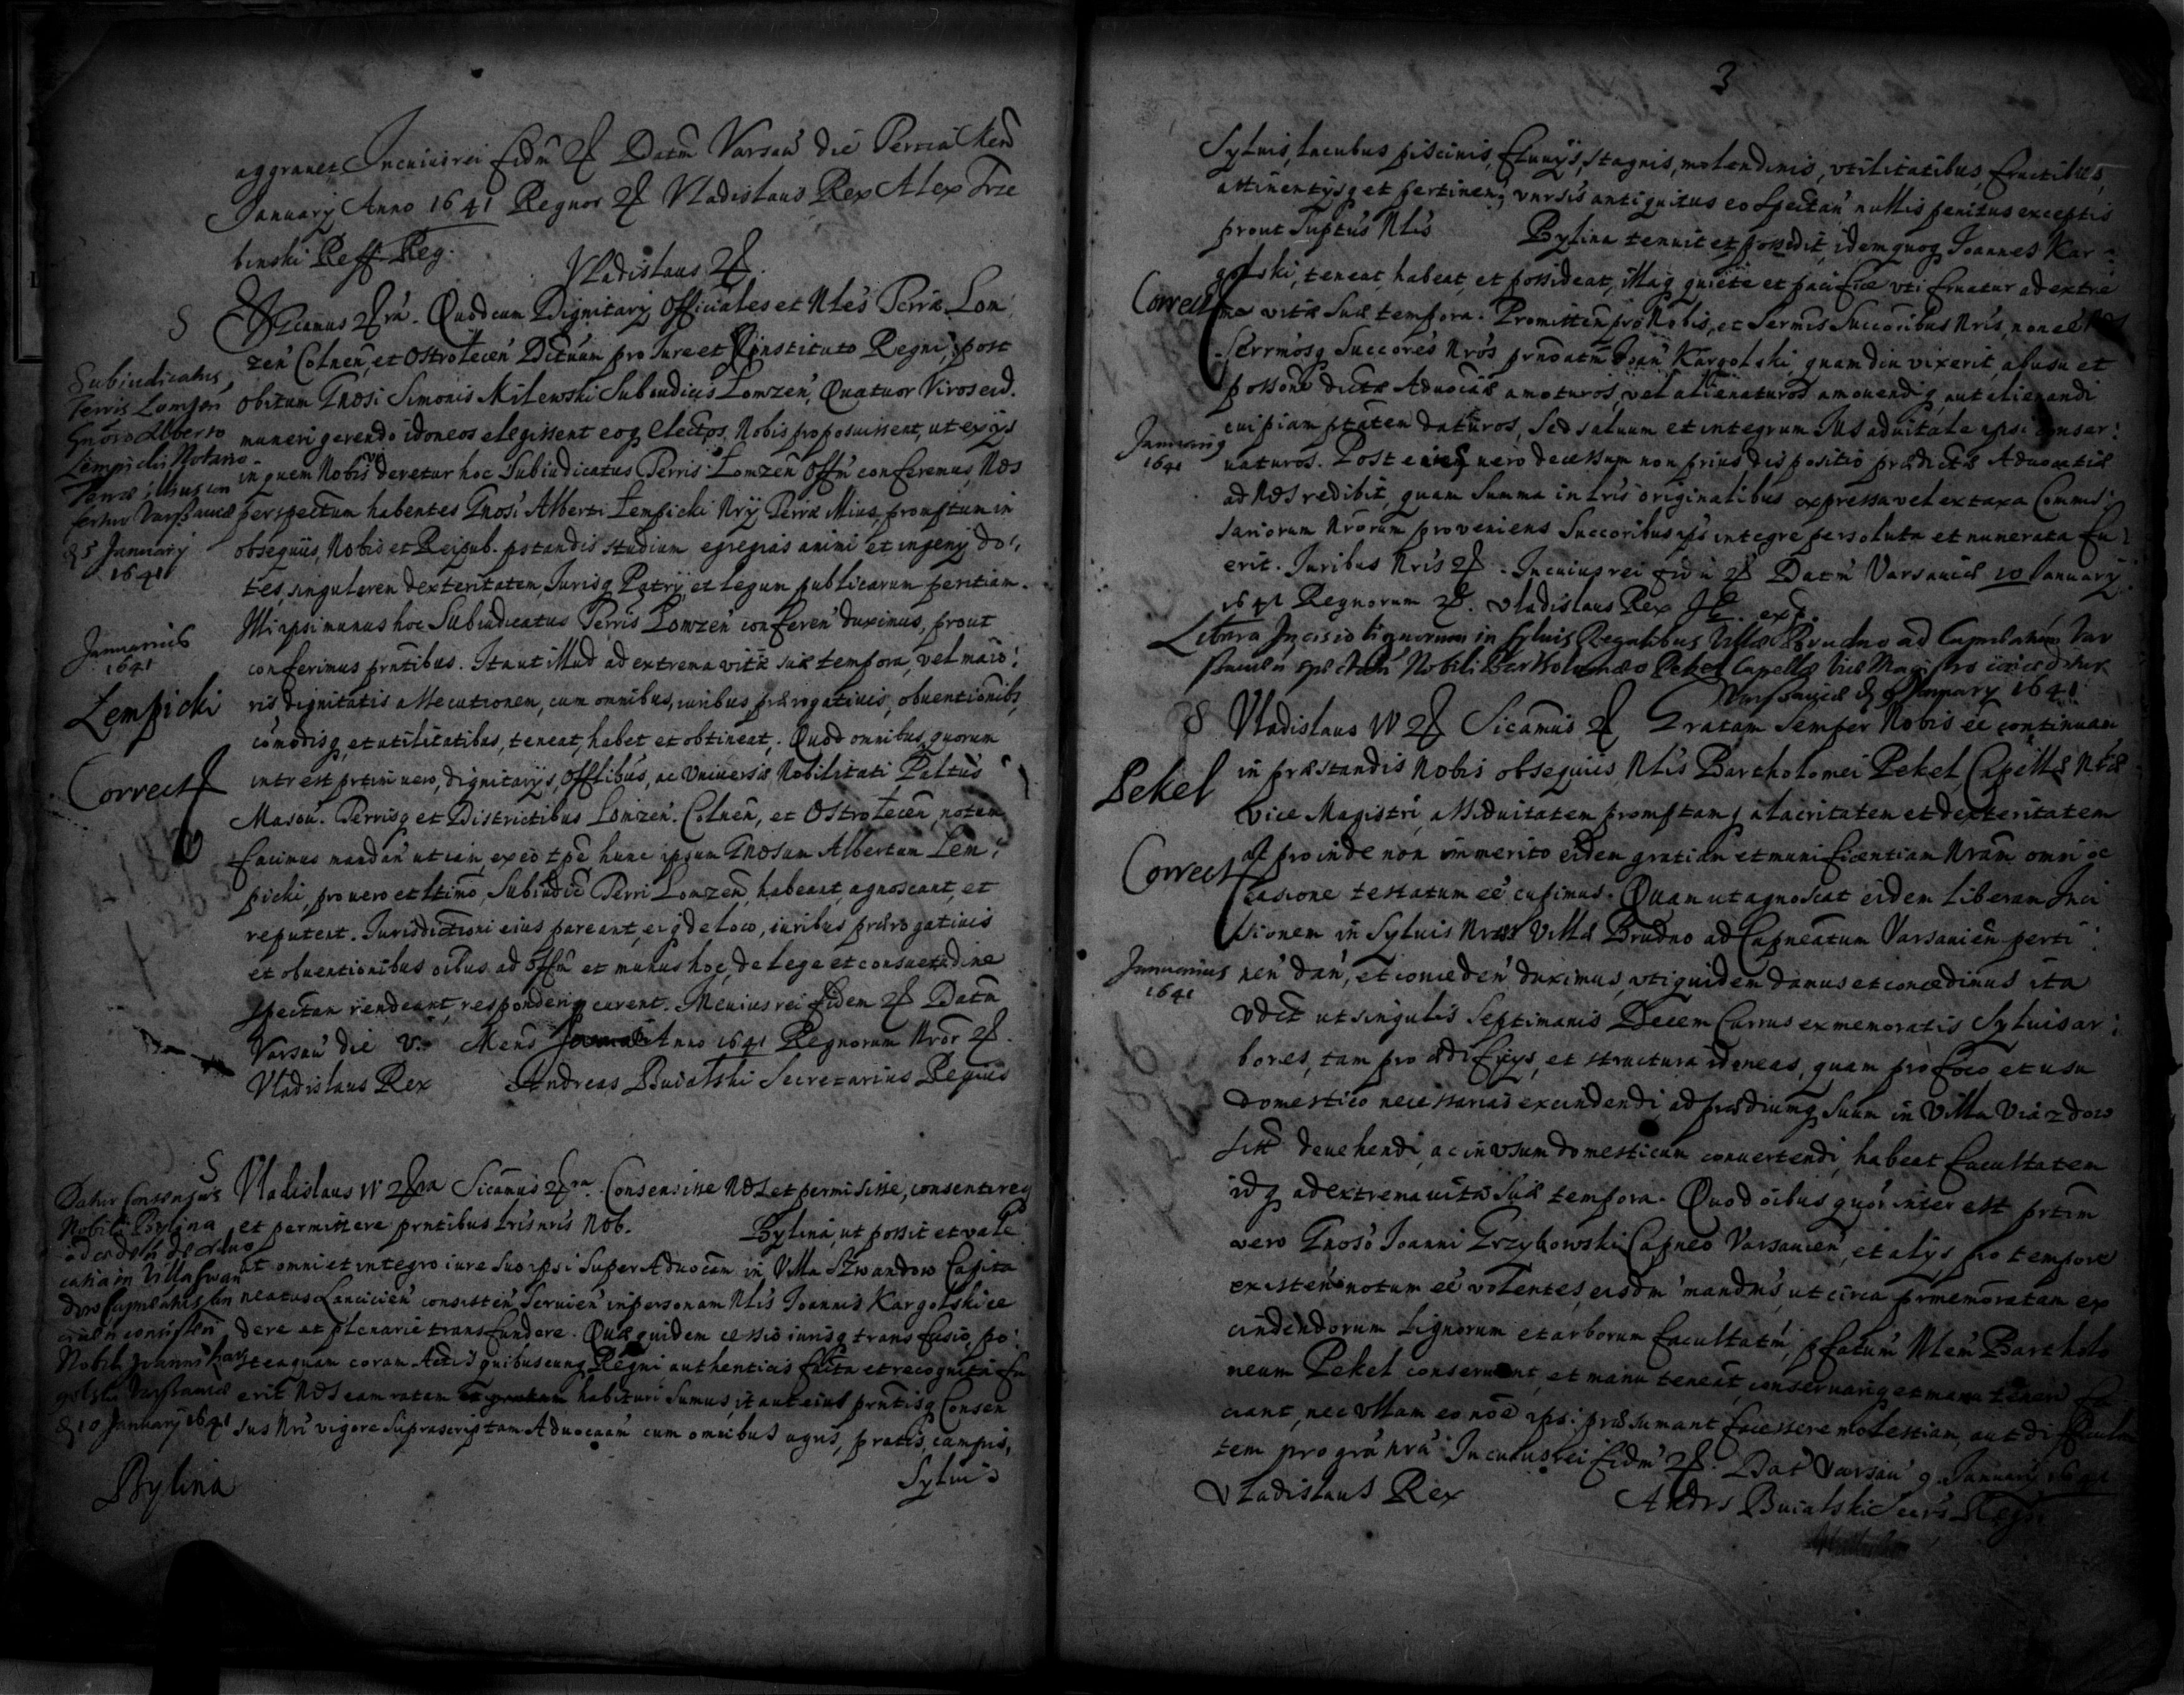 aggrauet In cuius rei fidm Datm Varsau die Tertia Men
January Anno 1641 Regnor Vladislaus Rex Alex Trze
binski Reff Reg.
Vladislaus
Sicamus Quod cum Dignitarij Officiales et Nles Terræ Lom
zen Colnen et Ostrolecen Districtuum pro Jure et Instituto Regni, post
obitum Gnosi Simonis Milewski Subiudicis Lomzen, Quatuor Viros eid.
muneri gerendo idoneos elegissent eosq electos Nobis proposuissent, ut ex ijs
in quem Nobis videretur hoc Subiudicatus Terris Lomzen Offm conferemus, Nos
perspectum habentes Gnosi Alberti Lempicki Nrij Terræ illius, promptum in
obsequiis, Nobis et Reipub. pstandis studium egregias animi et ingenij do
tes, singularem dexteritatem, Jurisq Patrij et legum publicarum peritiam.
Illi ipsi munus hoc Subiudicatus Terris Lomzen conferen duximus, prout
conferimus prntibus. Ita ut illud ad extrema vitæ suæ tempora, vel maio
ris dignitatis assecutionem, cum omnibus, iuribus, prærogatiuis, obuentionibs,
comodisq, et utilitatibus, teneat, habet et obtineat. Quod omnibus quorum
intrest prtim uero, dignitarijs, Offlibus, ac Vniuersæ Nobilitati Paltus
Masou. Terrisq et Districtibus Lomzen. Colnen, et Ostrolecen notum
facimus mandan ut iam ex eo tpe hunc ipsum Gnosum Albertum Lem
picki, pro uero et ltimo, Subiudic Terri Lomzen, habeant, agnoscant, et
reputent. Jurisdictioni eius pareant, eiq de loco, iuribus prærogatiuis
et obuentionibus oibus ad Offm et munus hoc, de lege et consuetudine
spectan rendeant, responderiq curent. In cuius rei fidem Datm
Varsau die V. Mens Anno 1641 Regnorum Nror
Vladislaus Rex Andreas Buialski Secretarius Regius
Subiudicatus
Terris Lomzen
Gnoso Alberto
Lempicki Notario
Terræ illius con
fertur Varsauiæ
d 5 January
1641
Januarius
1641
Lempicki
Correct
Vladislaus IV Sicamus Consensisse Nos et permisisse, consentireq
et permittere prntibus lris nris Nob. Bylina, ut possit et vale
at omni et integro iure suo ipsi super Aduocam in Villa Szwandow Capita
neatus Lancicien consisten, Seruien in personam Nlis Joannis Kargolski ce
dere et plenarie transfundere. Quæ quidem cessio iurisq transfusio, po
stea quam coram Actis quibuscunq Regni authenticis facta et recognita fu
erit Nos eam ratam habituri sumus, ita ut eius prntisq Consen
sus Nri vigore suprascriptam Aduocam cum omnibus agris, pratis, campis,
Syluis
Datur Consensus
Nobili Bylina
ad cedendum de Aduo
catia in Villa Szwan
dow Capneatus Lan
cicien consisten
Nobili Joanni Kar
golski Varsauiæ
d 10 January 1641
Bylina
3
Syluis, lacubus piscinis, fluuijs, stagnis, molendinis, vtilitatibus, fructibus,
attinentijsq et pertinen, vnrsis antiquitus eo spectan nullis penitus exceptis
prout suptus Nlis Bylina tenuit et possedit, idemquoq Joannes Kar
golski, teneat, habeat, et possideat, illaq quiete et pacifice vti fruatur ad extre
ma vitæ suæ tempora. Promitten pro Nobis, et Sermis Succoribus Nris, non ee Nos
Sermosq Succores Nros prnoatm Joan Kargolski, quamdiu vixerit, ab usu et
possone dictæ Aduociæ amoturos, vel alienaturos amouendiq, aut alienandi
cuipiam ptatem daturos, sed saluum et integrum Jus aduitale ipsi conser
uaturos. Post eius uero decessum non prius dispositio prædictæ Aduocatiæ
ad Nos redibit, quam Summa in lris originalibus expressa vel ex taxa Commis
sariorum Nrorum proveniens Succoribus ips integre persoluta et numerata fu
erit. Juribus Nris In cuius rei fidem Datm Varsauiæ 10 January
1641 Regnorum Vladislaus Rex
Correct
Januarius
1641
Libera Incisio lignorum in syluis Regalibus Villæ Brudno ad Capneatum Var
sauien spectan Nobili Bartholomæo Pekel Capellæ Vice Magistro conceditur
Varsauiæ d 9 January 1641
Vladislaus IV Sicamus Gratam semper Nobis ee continuam
in præstandis Nobis obsequiis Nlis Bartholomei Pekel, Capellæ Nræ
Vice Magistri, assiduitatem promptamq alacritatem et dexteritatem
ut proinde non immerito eidem gratiam et munificentiam Nram omni oc
casione testatum ee cupimus. Quam ut agnoscat eidem liberam Inci
sionem in Syluis Nris Villæ Brudno ad Capneatum Varsauien perti
nen dan, et conceden duximus, vti quidem damus et concedimus ita
vdct ut singulis septimanis Decem Currus ex memoratis Syluis ar
bores, tam pro ædificijs, et structura idoneas, quam pro foco et usu
domestico necessarias excindendi ad prædiumq suum in Villa Viazdow
sitt deuehendi, ac in vsum domesticum conuertendi, habeat facultatem
idq ad extrema uitæ suæ tempora. Quod oibus quor interest prtim
vero Gnoso Joanni Grzybowski Capneo Varsauien, et alijs pro tempore
existen notum ee volentes, eisdm mandms, ut circa prmemoratam ex
cindendorum Lignorum et arborum facultatm, pfatum Nlem Bartholo
meum Pekel conseruent, et manu teneat, conseruariq et manu teneri fa
ciant, nec vllam eo noe ipsi præsumant facessere molestiam, aut difficulta
tem pro gra nra In cuius rei fidm Dat Varsau 9 January 1641
Vladislaus Rex Andrs Buialski Secrs Regs
Pekel
Correct
Januarius
1641